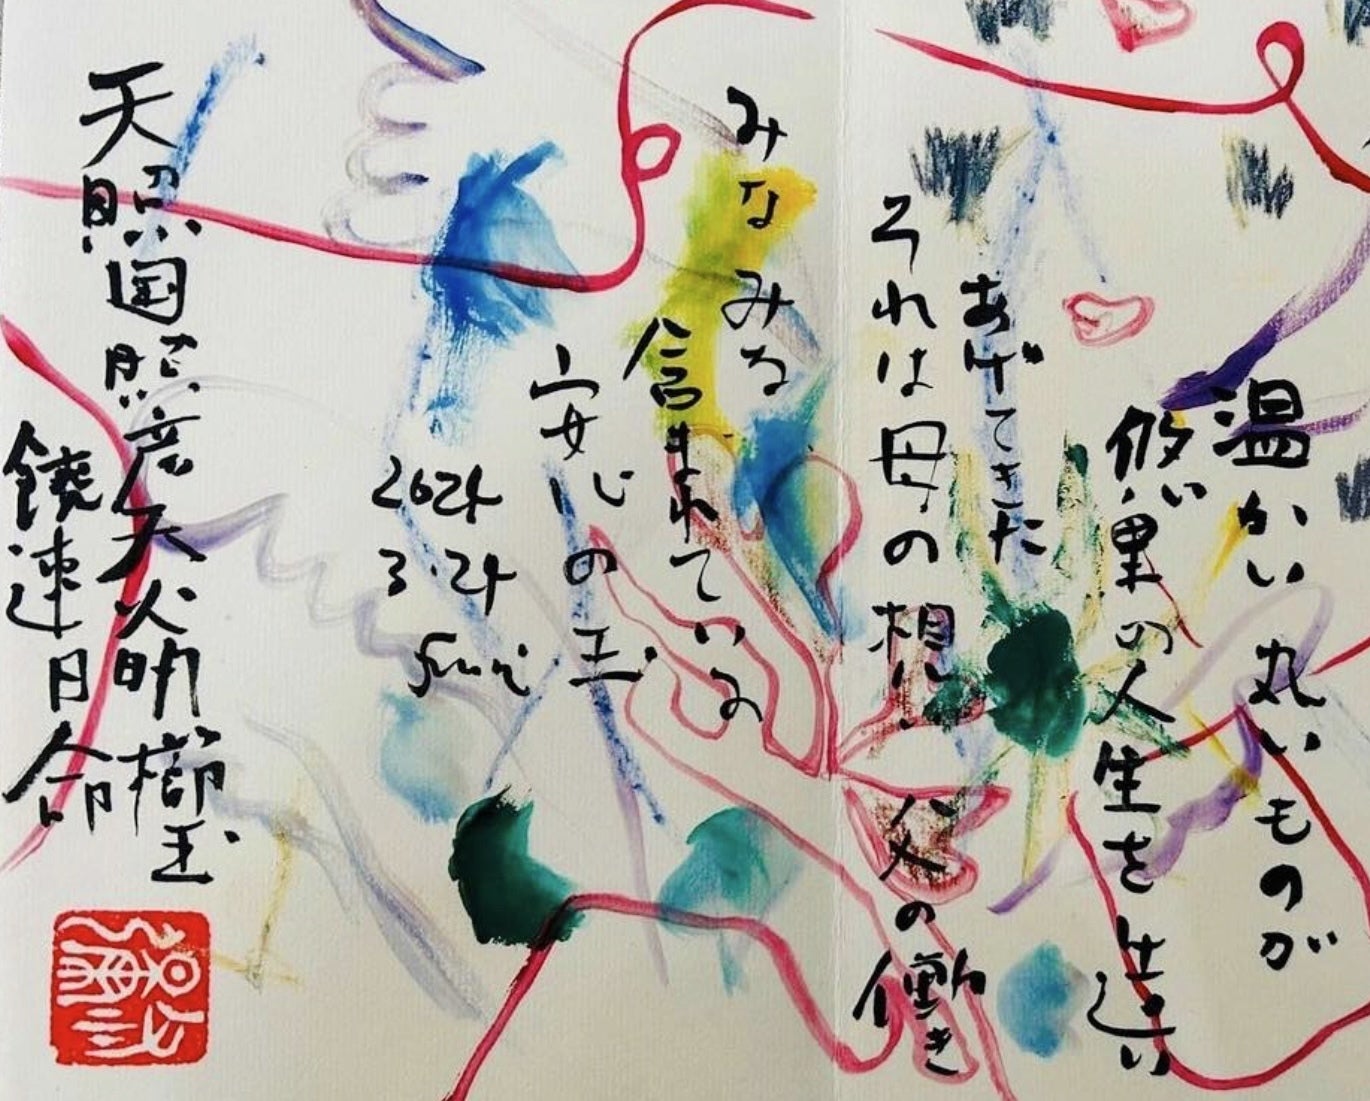 温かい丸いものが
悠里の人生を造り
あげてきた
それは母の想い 父の働き
みなみな
含まれている
安心の玉
2024
3.24
天照国照彦天火明櫛玉
饒速日命